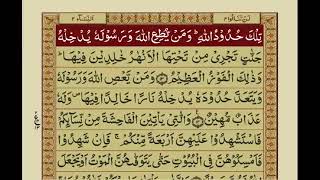 تِلْكَ حُدُوْدُ اللّٰهِ ؕ وَمَنْ يُّطِعِ اللّٰهَ وَرَسُوْلَهٗ يُدْخِلْهُ
جَنّٰتٍ تَجْرِيْ مِنْ تَحْتِهَا الْاَنْهٰرُ خٰلِدِيْنَ فِيْهَا ؕ
وَذٰلِكَ الْفَوْزُ الْعَظِيْمُ وَمَنْ يَّعْصِ اللّٰهَ وَرَسُوْلَهٗ
وَيَتَعَدَّ حُدُوْدَهٗ يُدْخِلْهُ نَارًا خَالِدًا فِيْهَا ۪ وَلَهٗ
عَذَابٌ مُّهِيْنٌ وَالّٰتِيْ يَاْتِيْنَ الْفَاحِشَةَ مِنْ نِّسَآئِكُمْ
فَاسْتَشْهِدُوْا عَلَيْهِنَّ اَرْبَعَةً مِّنْكُمْ ۚ فَاِنْ شَهِدُوْا
فَاَمْسِكُوْهُنَّ فِي الْبُيُوْتِ حَتّٰى يَتَوَفّٰهُنَّ الْمَوْتُ اَوْ يَجْعَلَ